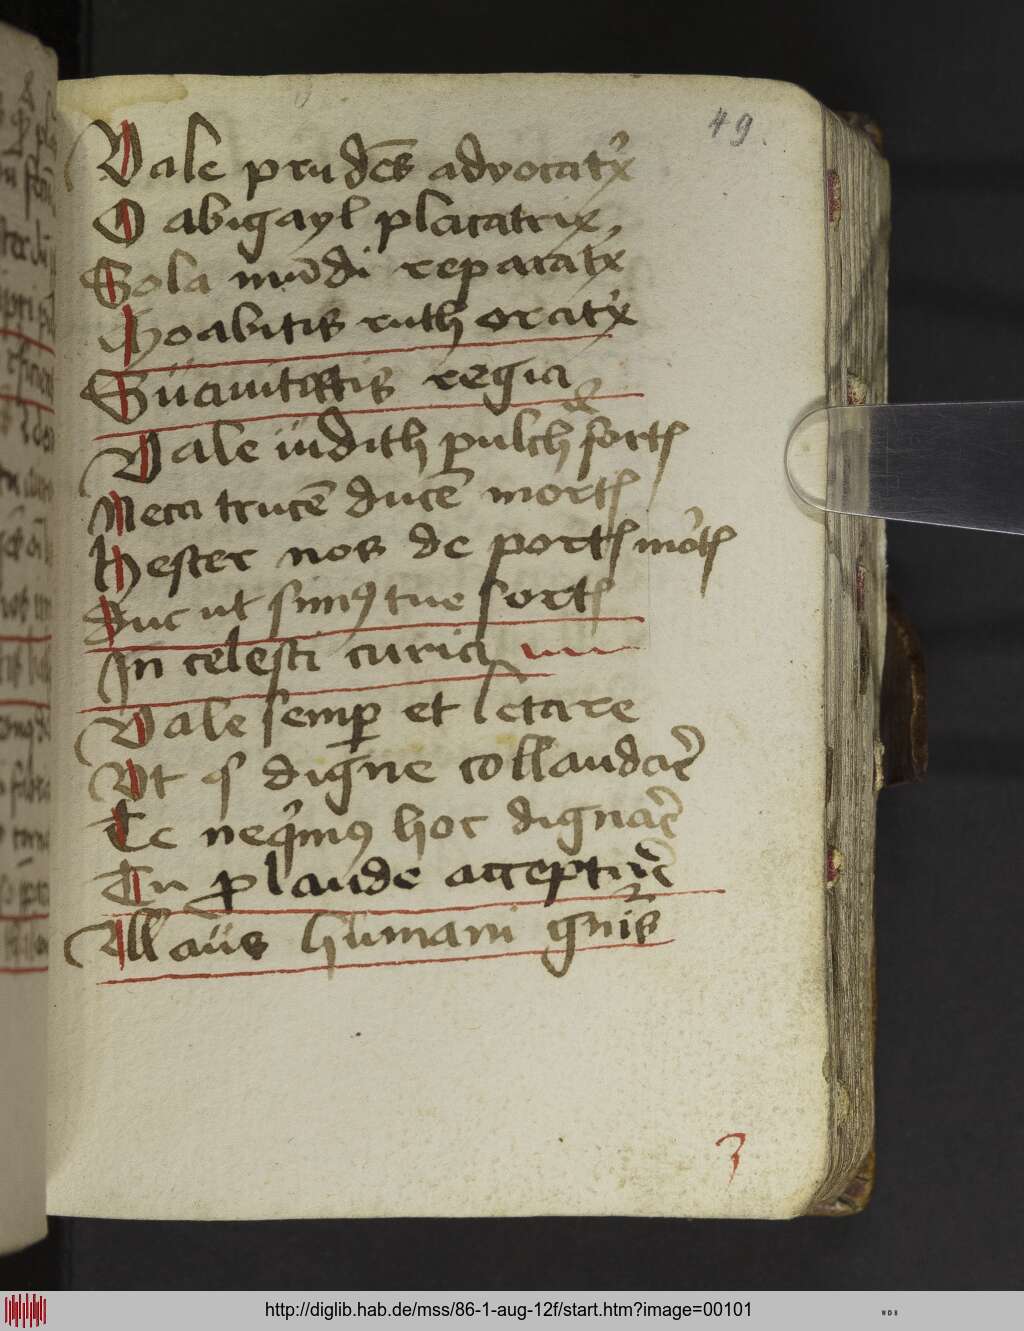 49.
Vale prudēs advocatᵢx
O abigayl placatrix,
Sola mūdi reparatᵢx
Moabitis ruth oratᵢx
Süavitatis regia
Vale iudith pulch & fortꝭ
Neca trucē ducē mortꝭ
Hester nos de portꝭ
Duc ut simꝰ tue sortꝭ
In celesti curia
Vale semꝑ et letare
Ut digne collaudar̄
Te neqͥmꝰ hoc dignar̄
Tu ꝓ laude
humani gn̄is
3
http://diglib.hab.de/mss/86-1-aug-12f/start.htm?image=00101